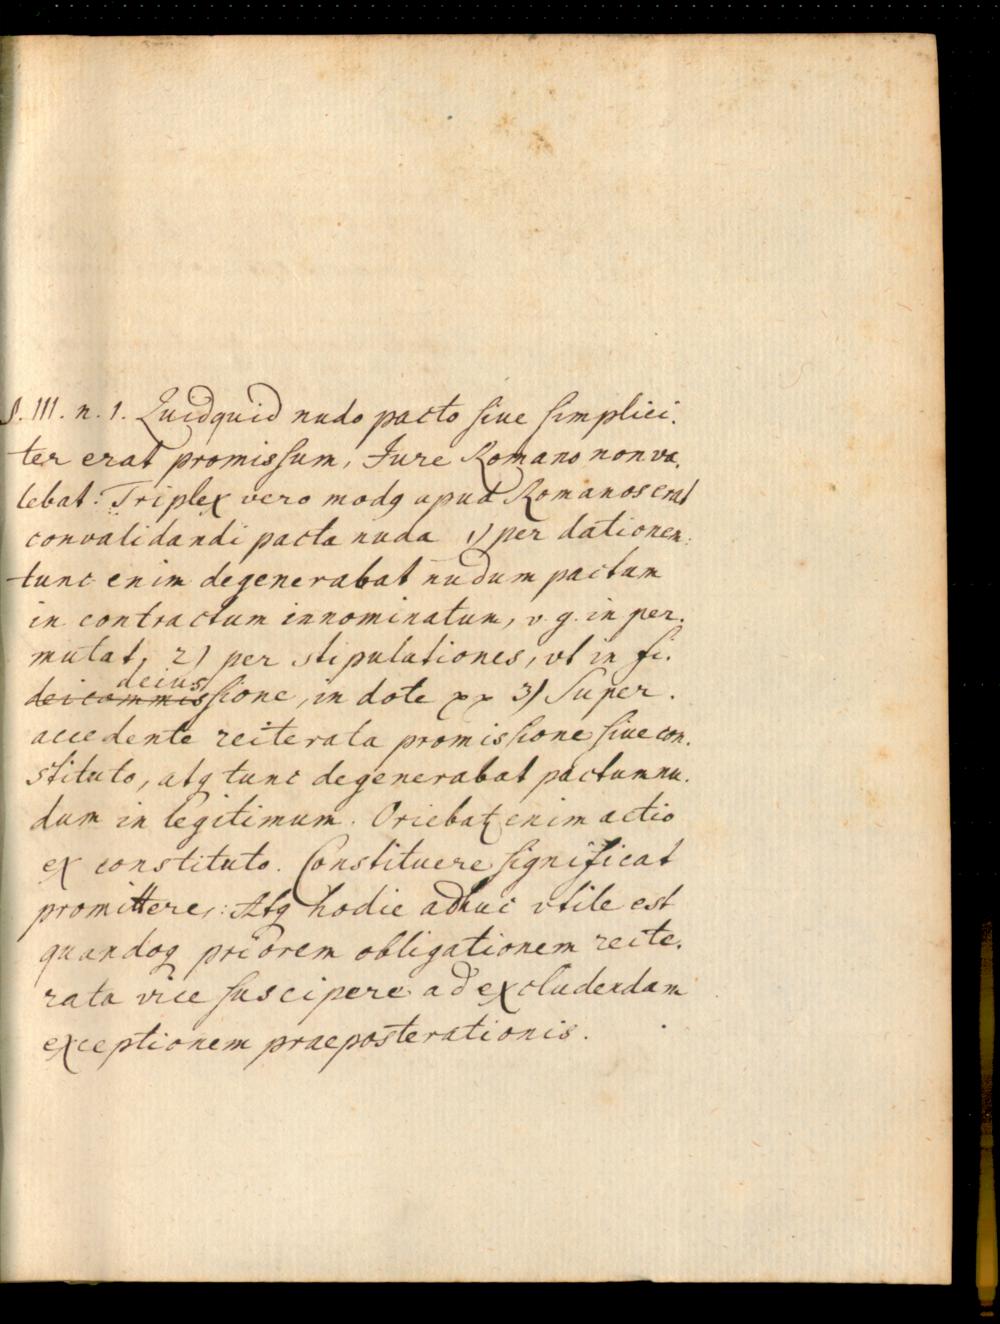 §. III. n. 1. Quidquid nudo pacto siue simplici.
ter erat promissum, Jure Romano non va.
lebat: Triplex vero modq apud Romanos erat
convalidandi pacta nuda 1) per dationem
tunc enim degenerabat nudum pactum
in contractum innominatum, v. g. in per.
mutat, 2) per stipulationes, vt in fi.
deius
deicommissione, in dote xx 3) Super.
accedente reiterata promissione siue con.
stituto, atq tunc degenerabat pactum nu.
dum in legitimum. Oriebat enim actio
ex constituto. Constituere significat
promittere,: Atq hodie adhuc vtile est
quandoq priorem obligationem reite.
rata vice suscipere ad excludendam
exceptionem praeposterationis.